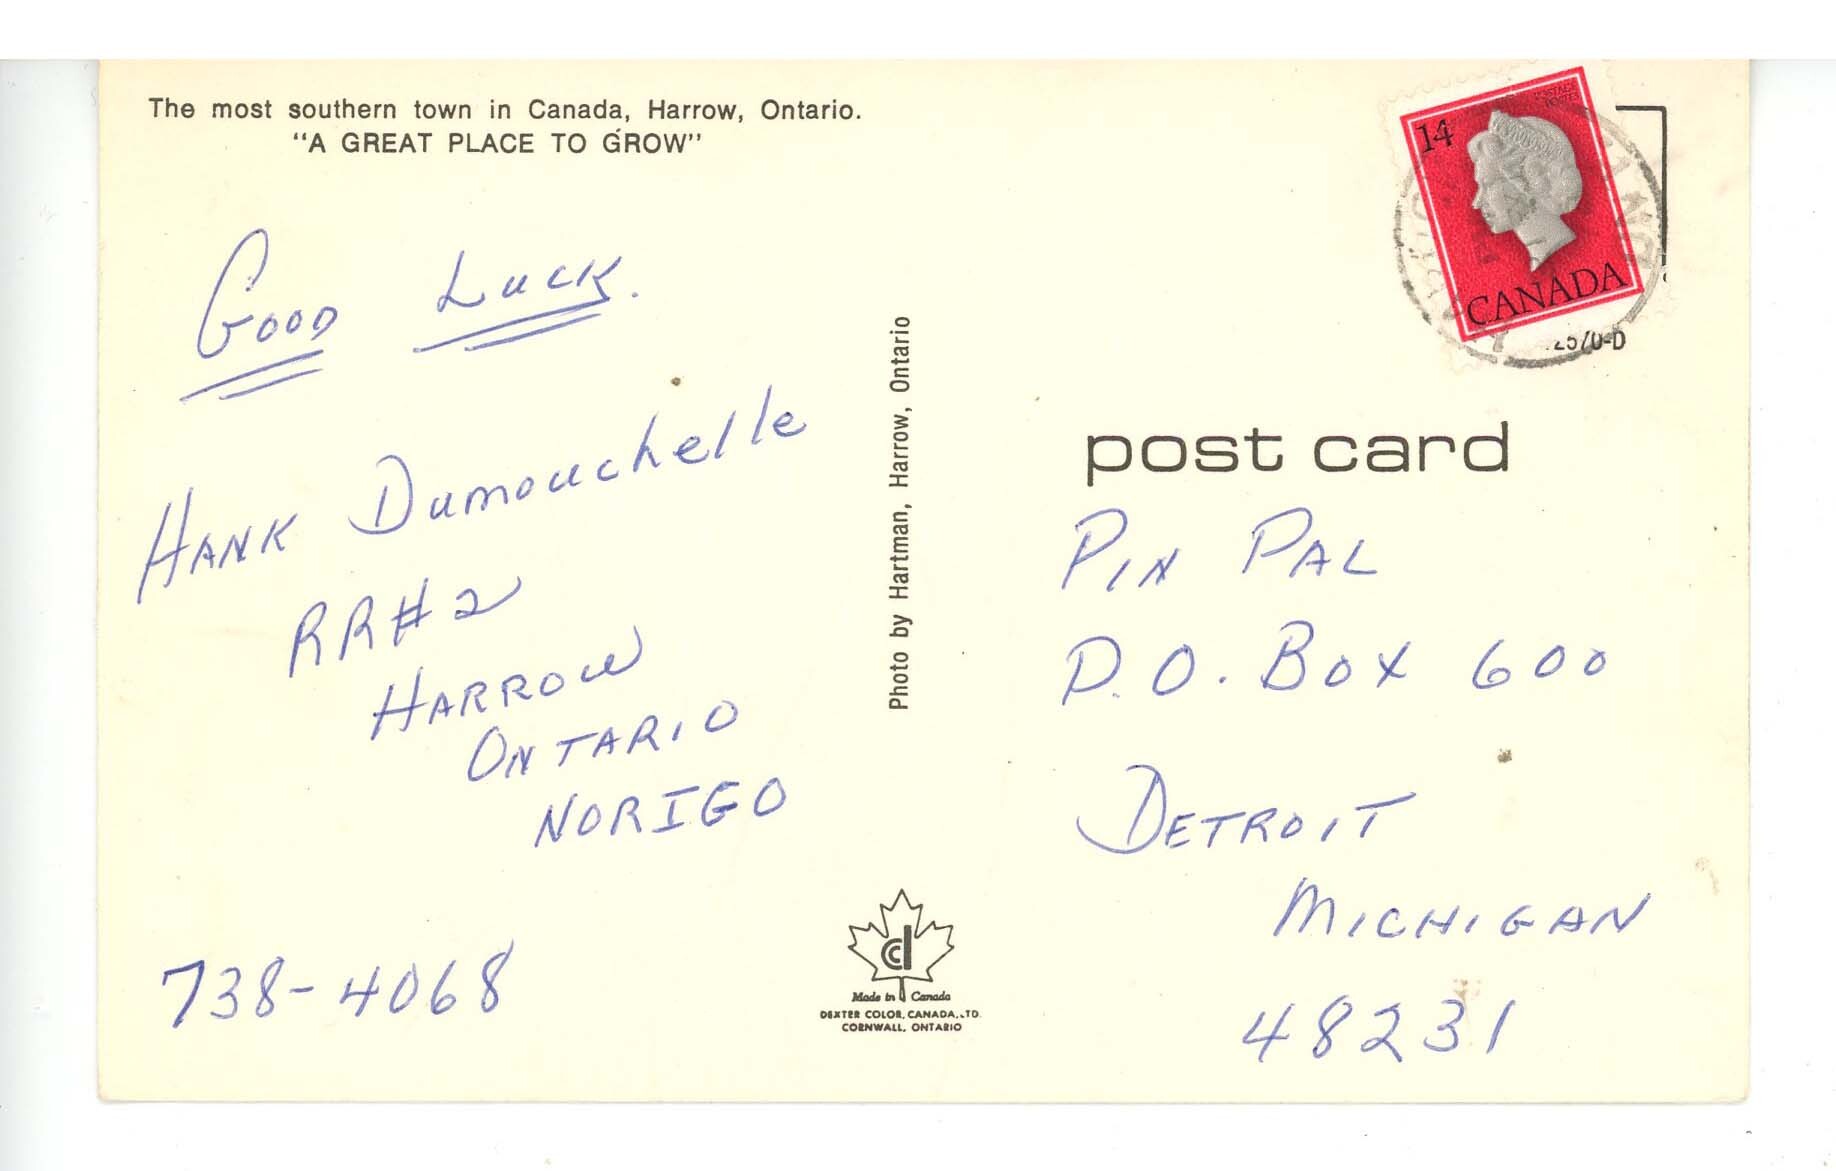 The most southern town in Canada, Harrow, Ontario.
"A GREAT PLACE TO GROW"
GOOD LUCK.
HANK Dumouchelle
RR#2
HARROW
ONTARIO
NORIGO
738-4068
Photo by Hartman, Harrow, Ontario
Made in Canada
DEXTER COLOR, CANADA, LTD.
CORNWALL, ONTARIO
14
POSTAGE
POSTES
CANADA
post card
PIN PAL
P.O. BOX 600
DETROIT
MICHIGAN
48231